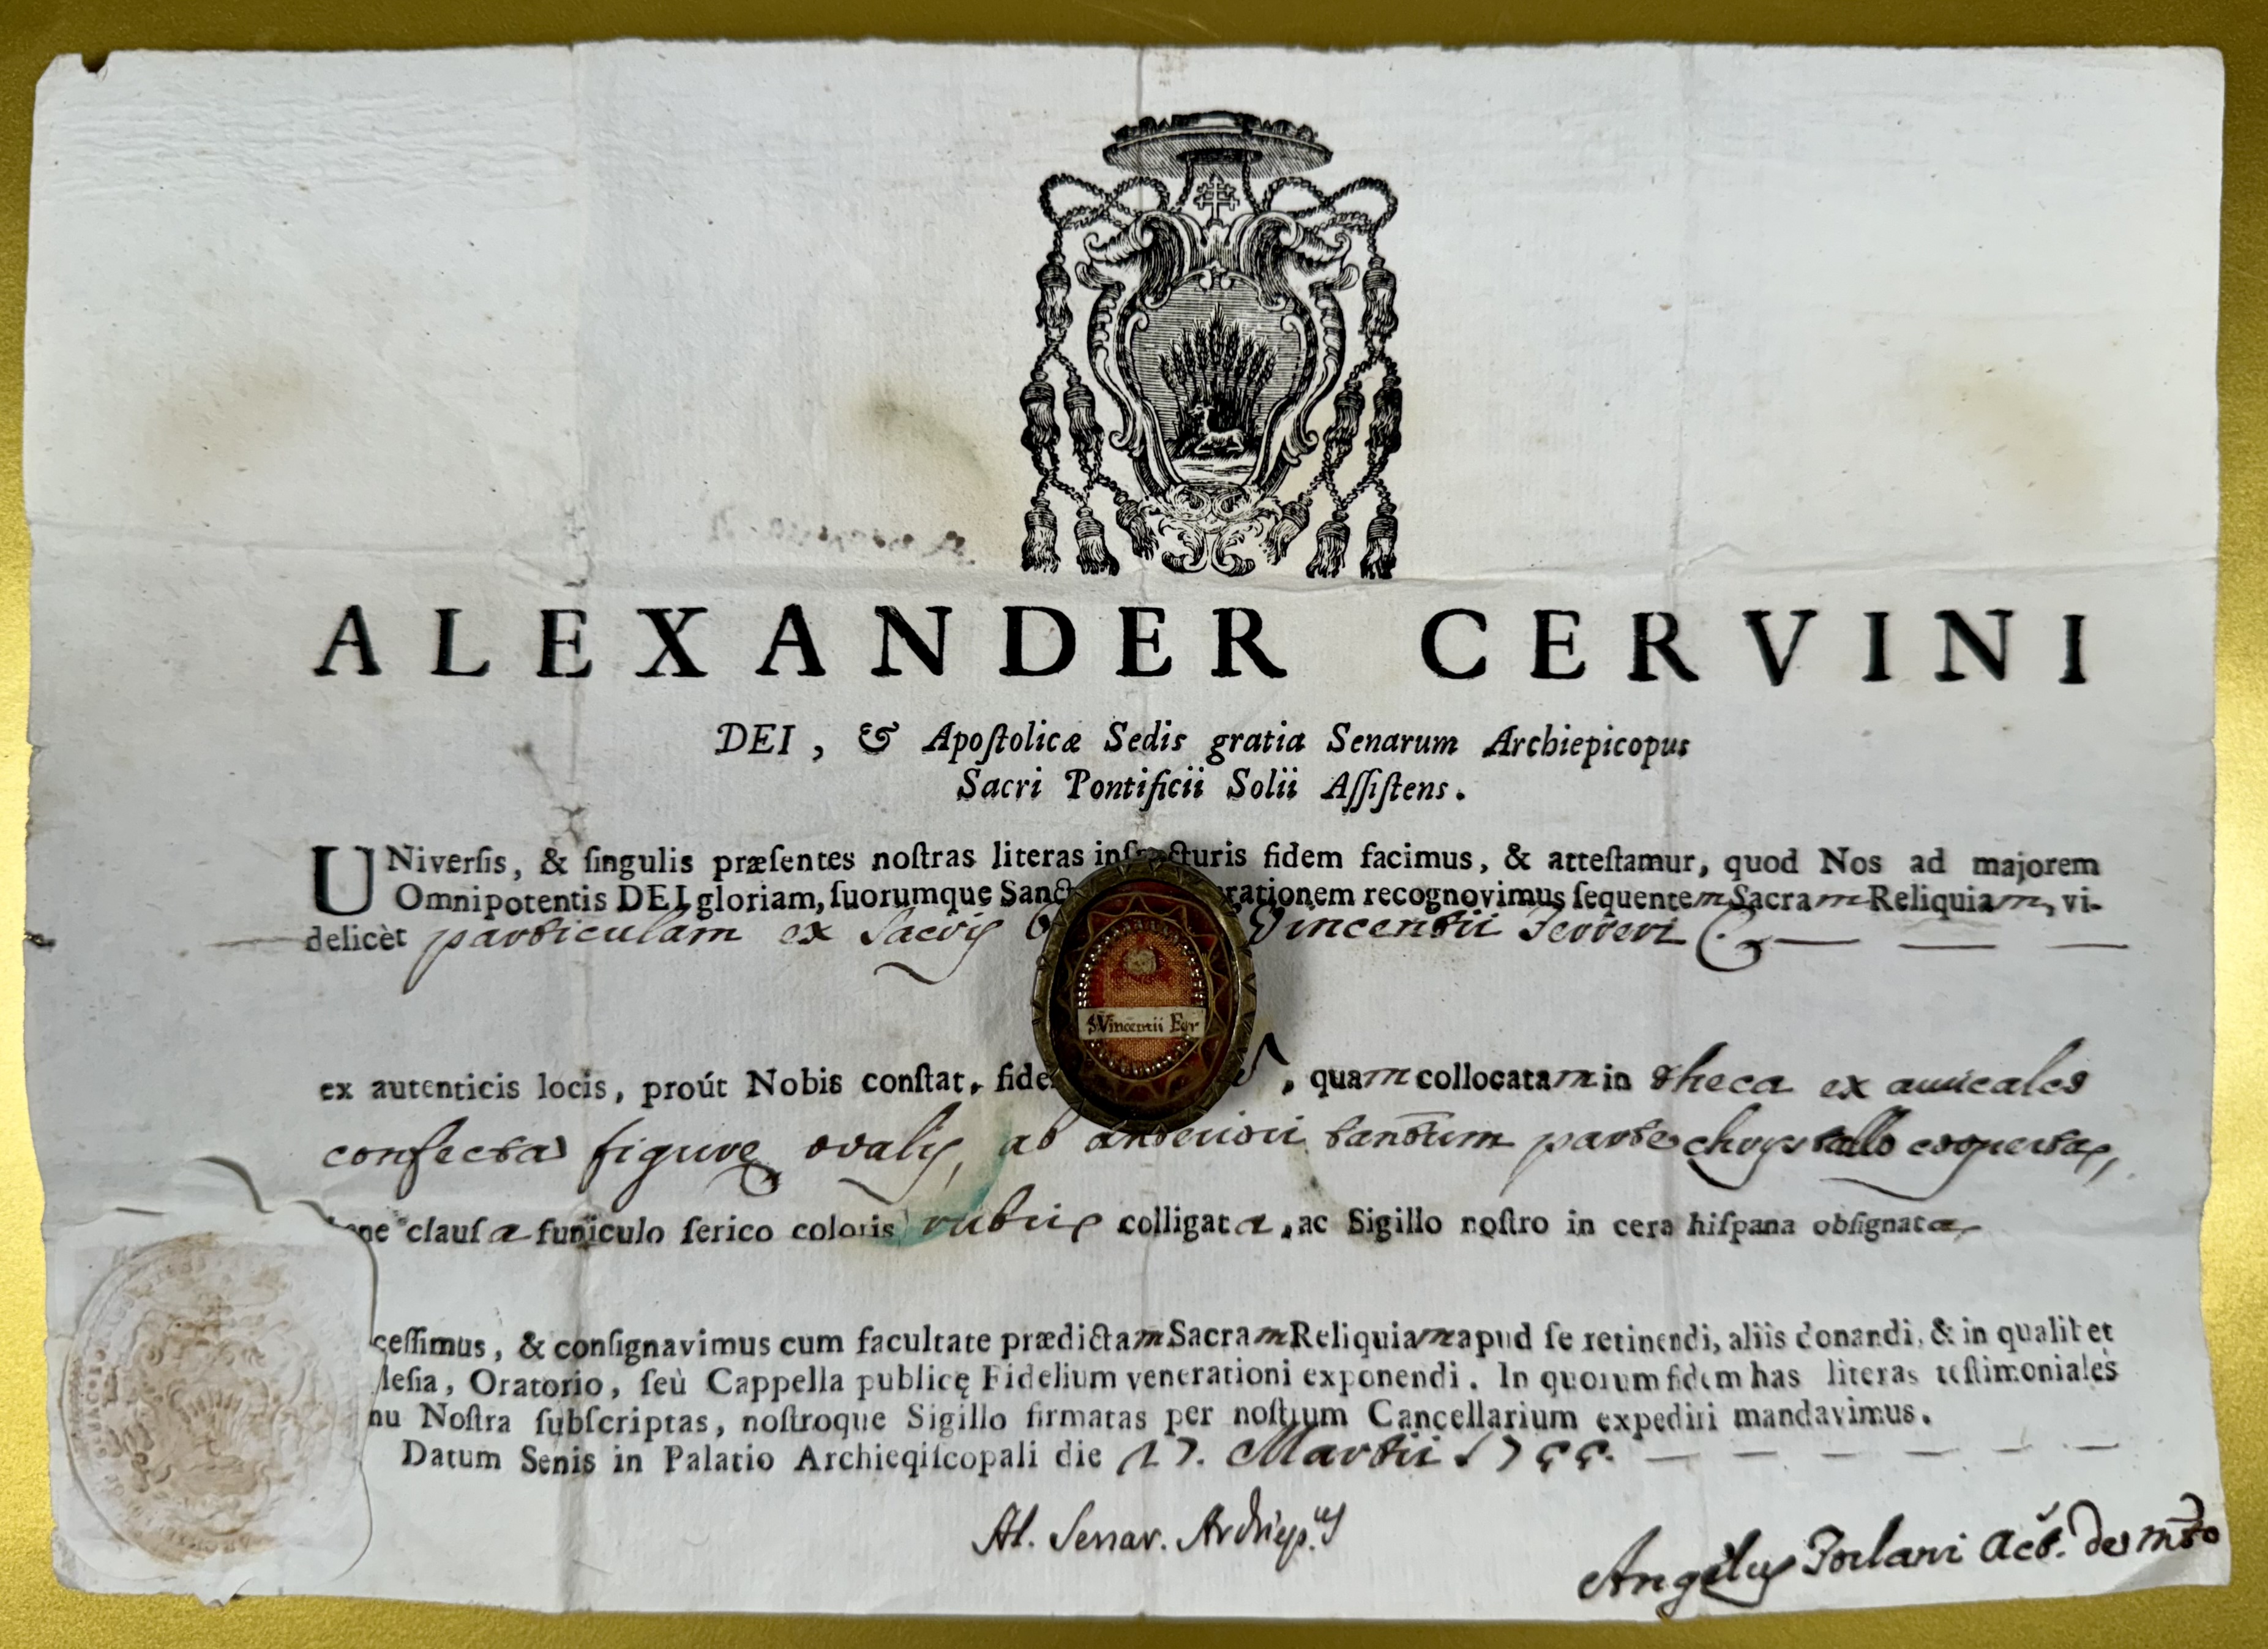 ALEXANDER CERVINI
DEI, & Apoſtolicæ Sedis gratia Senarum Archiepicopus
Sacri Pontificii Solii Aſſiſtens.
UNiverſis, & ſingulis præſentes noſtras literas inſpecturis fidem facimus, & atteſtamur, quod Nos ad majorem
Omnipotentis DEI gloriam, ſuorumque Sanct rationem recognovimus ſequentem Sacram Reliquiam, vi-
delicèt particulam ex Sacris Vincentii Ferreri
S Vincentii Fer
ex autenticis locis, proút Nobis conſtat, fide , quam collocatam in theca ex auricalco
confecta figuræ ovalis, ab anteriori tantum parte chrystallo cooperta,
bene clauſa funiculo ſerico coloris rubri colligata, ac Sigillo noſtro in cera hiſpana obſignata
ceſſimus, & conſignavimus cum facultate prædictam Sacram Reliquiam apud ſe retinendi, aliis donandi, & in qualibet
leſia, Oratorio, ſeù Cappella publicę Fidelium venerationi exponendi. In quorum fidem has literas teſtimoniales
nu Noſtra ſubſcriptas, noſtroque Sigillo firmatas per noſtrum Cancellarium expediri mandavimus.
Datum Senis in Palatio Archieqiſcopali die 17. Martii 1755.
Al. Senar. Archiep.us
Angelus